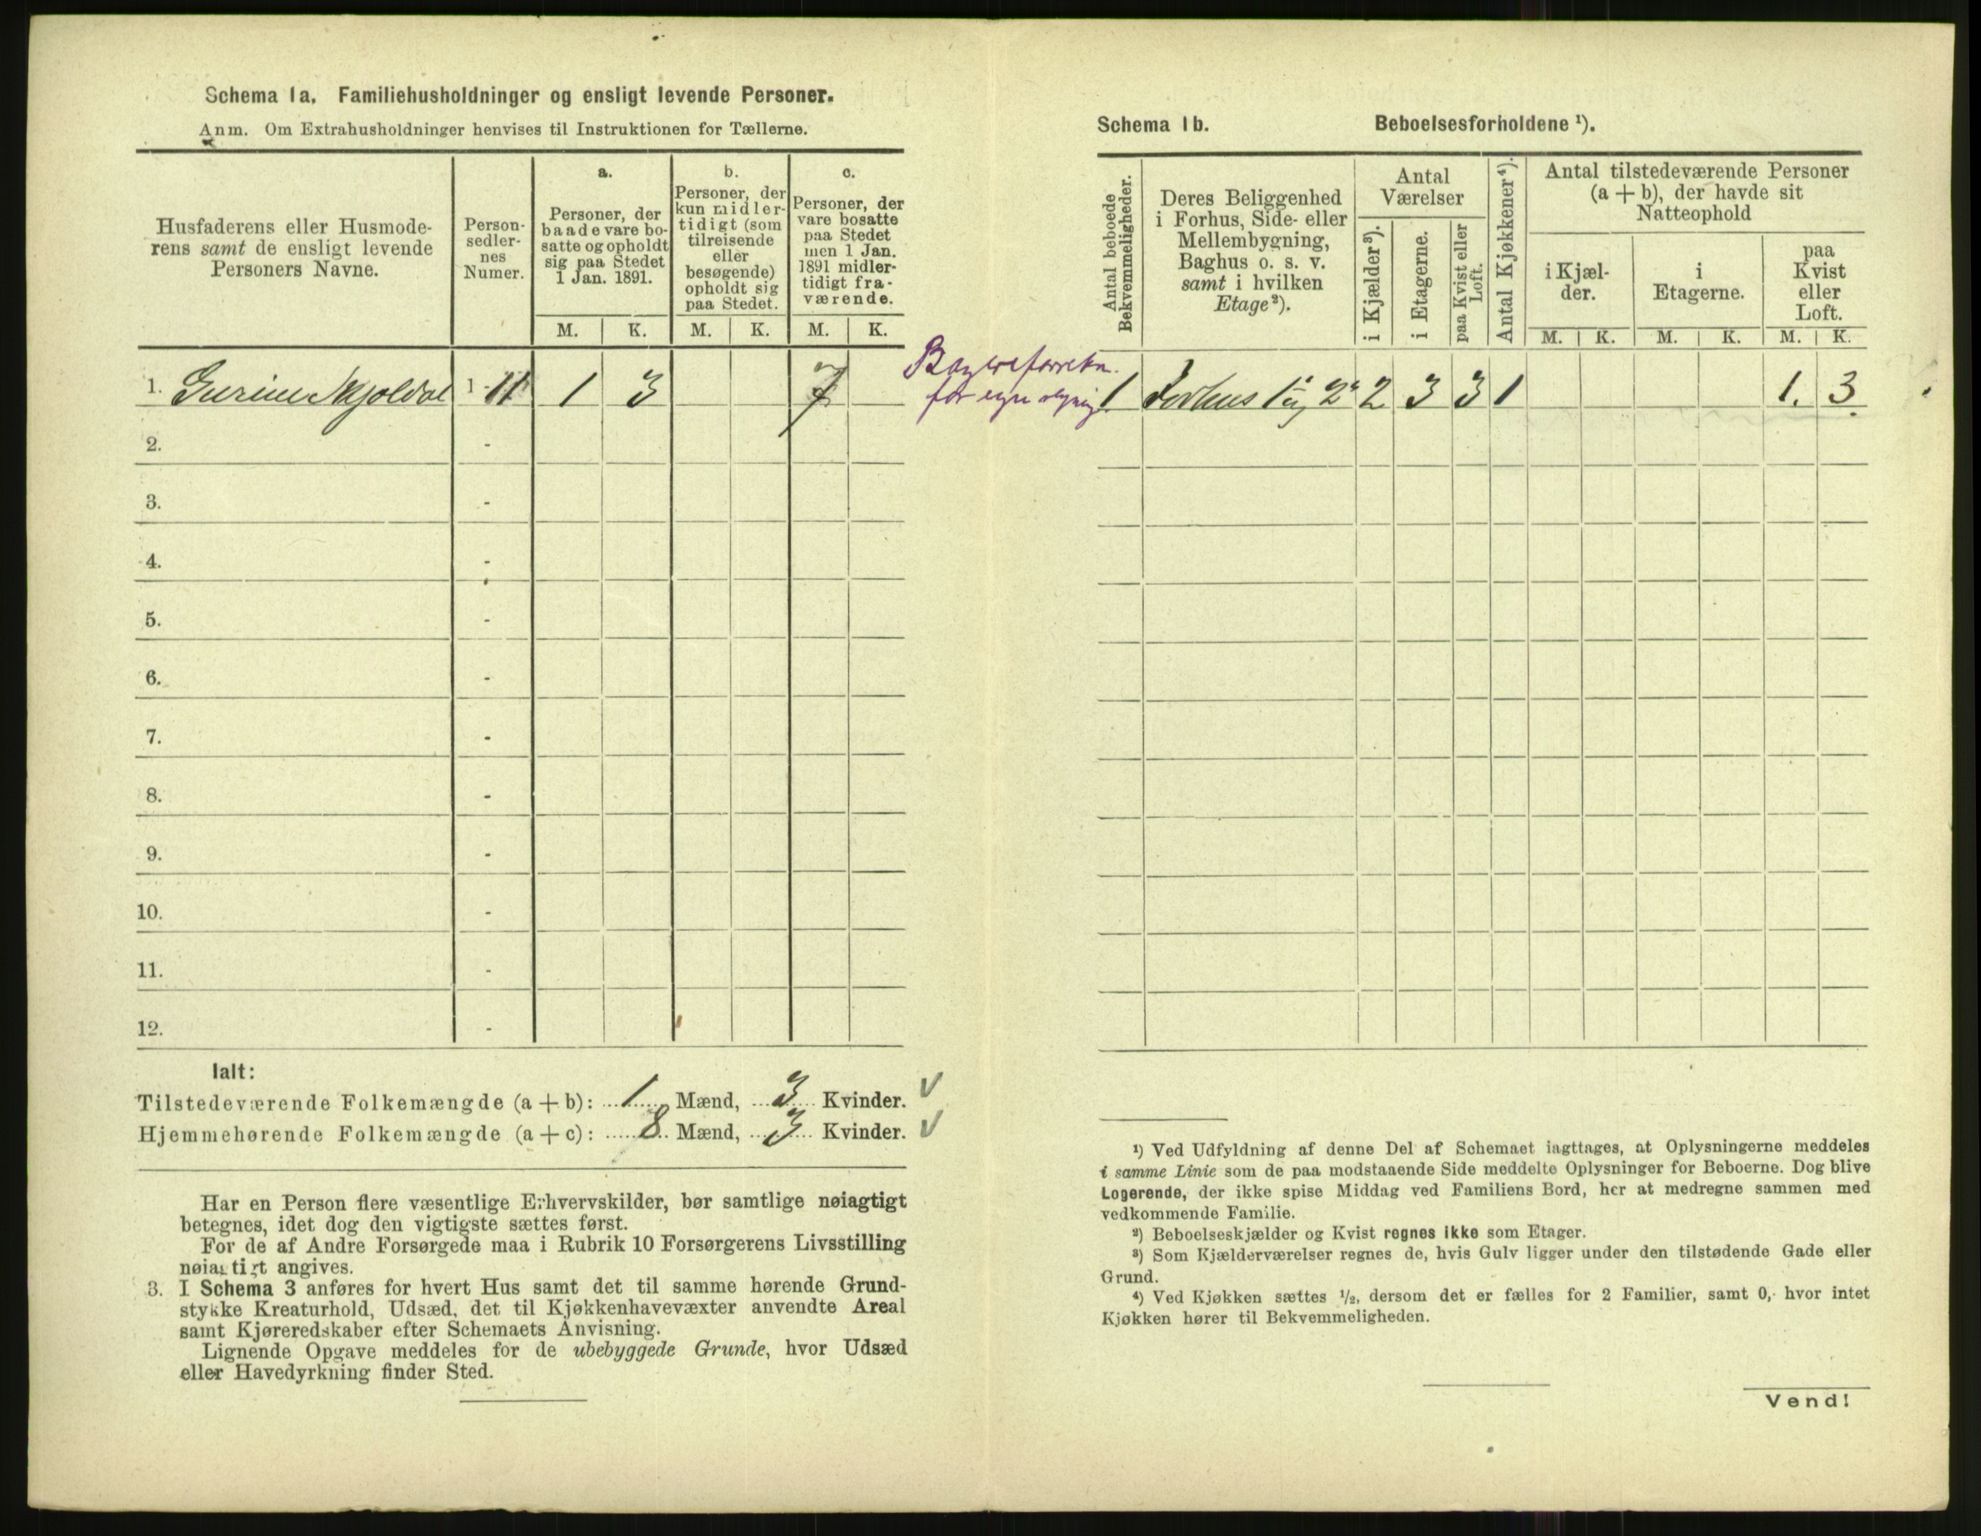 Schema 1a. Familiehusholdninger og ensligt levende Personer.
Anm. Om Extrahusholdninger henvises til Instruktionen for Tællerne.
Husfaderens eller Husmode-
rens samt de ensligt levende
Personers Navne.
Person-
sedler-
nes
Numer.
a.
Personer, der
baade vare bo-
satte og opholdt
sig paa Stedet
1 Jan. 1891.
b.
Personer, der
kun midler-
tidigt (som
tilreisende
eller
besøgende)
opholdt sig
paa Stedet.
c.
Personer, der
vare bosatte
paa Stedet
men 1 Jan.
1891 midler-
tidigt fra-
værende.
M. K. M. K. M. K.
1. Gurine Skjoldal 1 - 11 1 3 7
2. -
3. -
4. -
5. -
6. -
7. -
8. -
9. -
10. -
11. -
12. -
Ialt:
Tilstedeværende Folkemængde (a + b): 1 Mænd, 3 Kvinder. ✓
Hjemmehørende Folkemængde (a + c): 8 Mænd, 3 Kvinder. ✓
Har en Person flere væsentlige Erhvervskilder, bør samtlige nøiagtigt
betegnes, idet dog den vigtigste sættes først.
For de af Andre Forsørgede maa i Rubrik 10 Forsørgerens Livsstilling
nøiagtigt angives.
3. I Schema 3 anføres for hvert Hus samt det til samme hørende Grund-
stykke Kreaturhold, Udsæd, det til Kjøkkenhavevæxter anvendte Areal
samt Kjøreredskaber efter Schemaets Anvisning.
Lignende Opgave meddeles for de ubebyggede Grunde, hvor Udsæd
eller Havedyrkning finder Sted.
Schema 1b. Beboelsesforholdene ¹).
Antal beboede
Bekvemmeligheder.
Deres Beliggenhed
i Forhus, Side- eller
Mellembygning,
Baghus o. s. v.
samt i hvilken
Etage²).
Antal
Værelser
i Kjælder³).
i Etagerne.
paa Kvist eller
Loft.
Antal Kjøkkener⁴).
Antal tilstedeværende Personer
(a + b), der havde sit
Natteophold
i Kjæl-
der.
i
Etagerne.
paa
Kvist
eller
Loft.
M. K. M. K. M. K.
for
1 Forhus 1 og 2 2 3 3 1 1. 3.
¹) Ved Udfyldning af denne Del af Schemaet iagttages, at Oplysningerne meddeles
i samme Linie som de paa modstaaende Side meddelte Oplysninger for Beboerne. Dog blive
Logerende, der ikke spise Middag ved Familiens Bord, her at medregne sammen med
vedkommende Familie.
²) Beboelseskjælder og Kvist regnes ikke som Etager.
³) Som Kjælderværelser regnes de, hvis Gulv ligger under den tilstødende Gade eller
Grund.
⁴) Ved Kjøkken sættes ½, dersom det er fælles for 2 Familier, samt 0, hvor intet
Kjøkken hører til Bekvemmeligheden.
Vend!